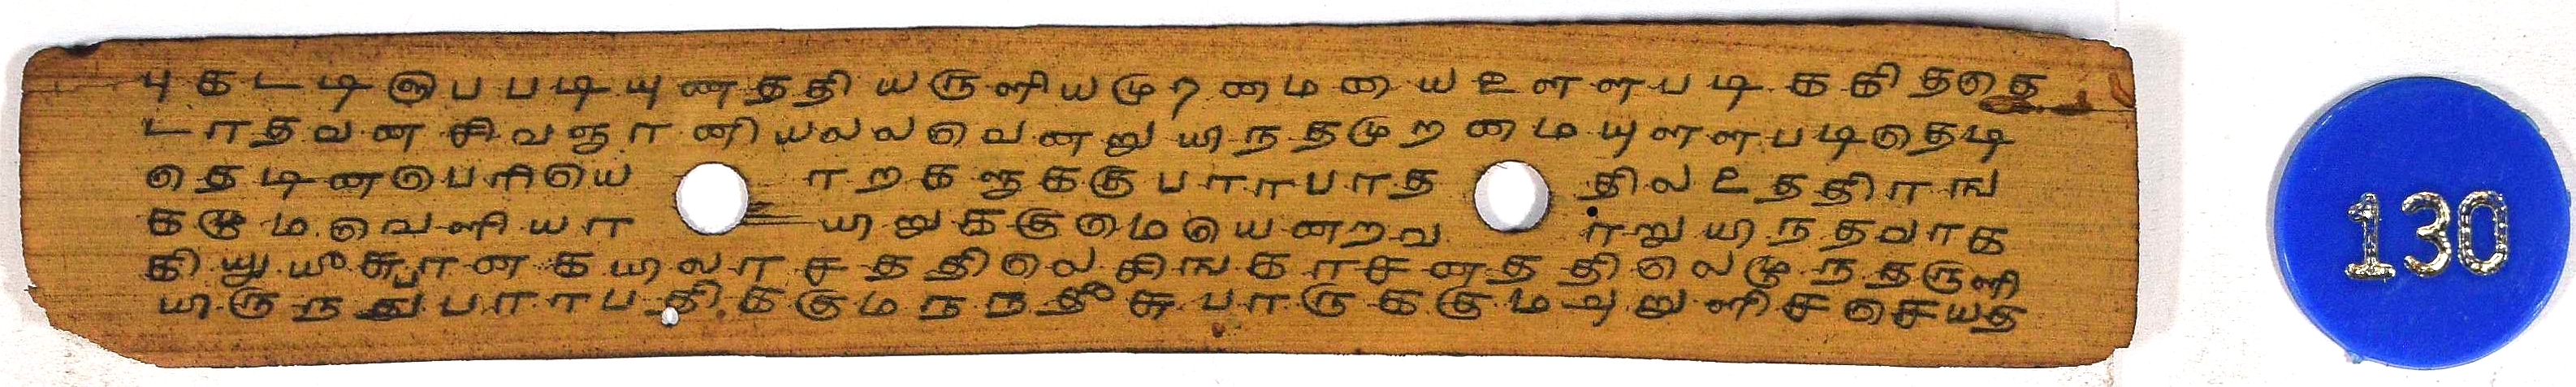 புகட டி ளுப படியுணததி யருளியமுரணமமை ய உளளபடிககிததெ
டாதவன சிவஞானியலலவெனறுயிநதமுறணமையுளளபடிதெடி
தெடினபெரியெ ாறகளுககு பாரபாத தில உததிராங
கமூம வெளியா யிறுககுமெயெனறவ ாறுயிநதவாக
கியுயீசுரான கயிலாசததிலெசிஙகாசனததிலெமூநதருளி
யிருநதுபாராபதிககுமநநதீசுபாருககுமஅறுளிசசெயத
130